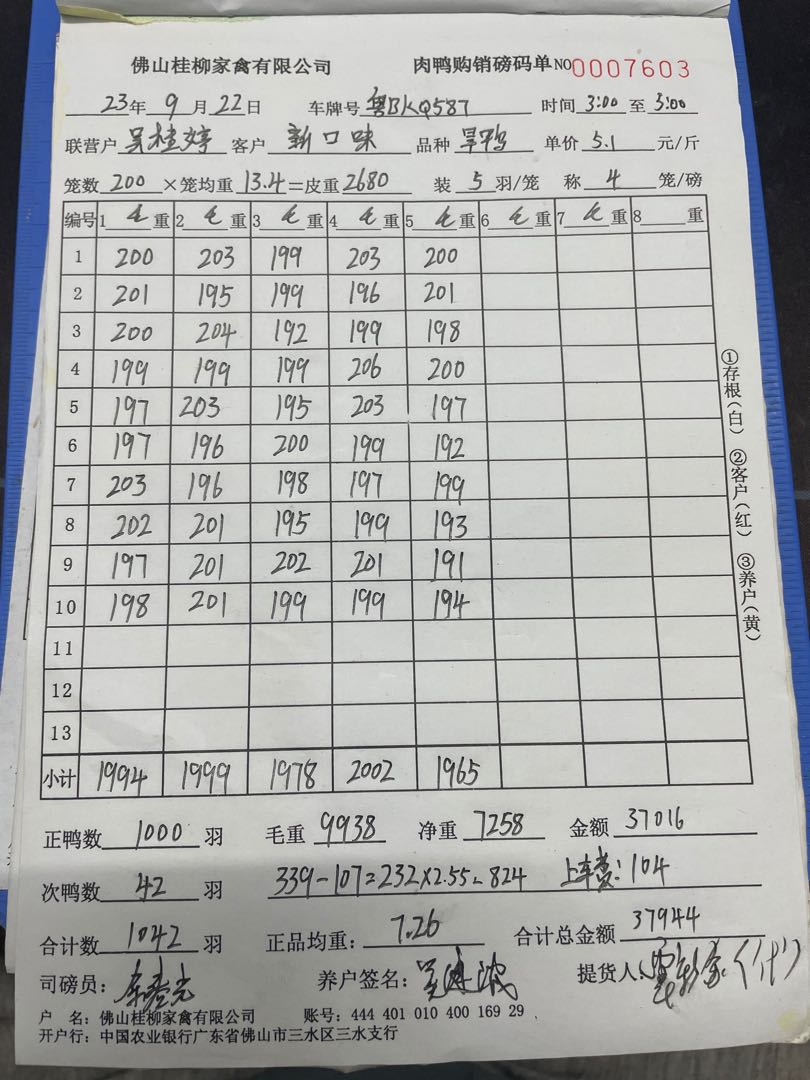 佛山桂柳家禽有限公司 肉鸭购销磅码单 NO 0007603
23年 9月22日 车牌号 粤BKQ587 时间 3:00 至 5:00
联营户 吴桂婷 客户 新口味 品种 旱鸭 单价 5.1 元/斤
笼数 200 ×笼均重 13.4 =皮重 2680 装 5 羽/笼 称 4 笼/磅
编号 1 毛 重 2 毛 重 3 毛 重 4 毛 重 5 毛 重 6 毛 重 7 毛 重 8 重
1 200 203 199 203 200
2 201 195 199 196 201
3 200 204 192 199 198
4 199 199 199 206 200
5 197 203 195 203 197
6 197 196 200 199 192
7 203 196 198 197 199
8 202 201 195 199 193
9 197 201 202 201 191
10 198 201 199 199 194
11
12
13
小计 1994 1999 1978 2002 1965
①存根(白) ②客户(红) ③养户(黄)
正鸭数 1000 羽 毛重 9938 净重 7258 金额 37016
次鸭数 42 羽 339-107=232×2.55=824 上车费:104
合计数 1042 羽 正品均重: 7.26 合计总金额 37944
司磅员: 养户签名: 吴 提货人: (代)
户 名: 佛山桂柳家禽有限公司 账号: 444 401 010 400 169 29
开户行: 中国农业银行广东省佛山市三水区三水支行